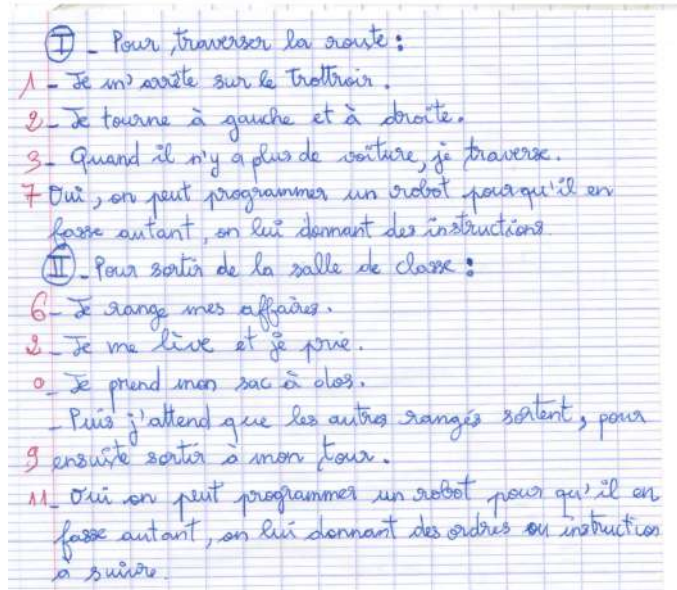 I - Pour traverser la route :
1 - Je m'arrête sur le trottroir.
2 - Je tourne à gauche et à droite.
3 - Quand il n'y a plus de voiture, je traverse.
7 Oui, on peut programmer un robot pour qu'il en
fasse autant, en lui donnant des instructions
II - Pour sortir de la salle de classe :
6 - Je range mes affaires.
2 - Je me lève et je prie.
0 - Je prend mon sac à dos.
- Puis j'attend que les autres rangés sortent, pour
9 ensuite sortir à mon tour.
11 - Oui on peut programmer un robot pour qu'il en
fasse autant, en lui donnant des ordres ou instruction
à suivre.